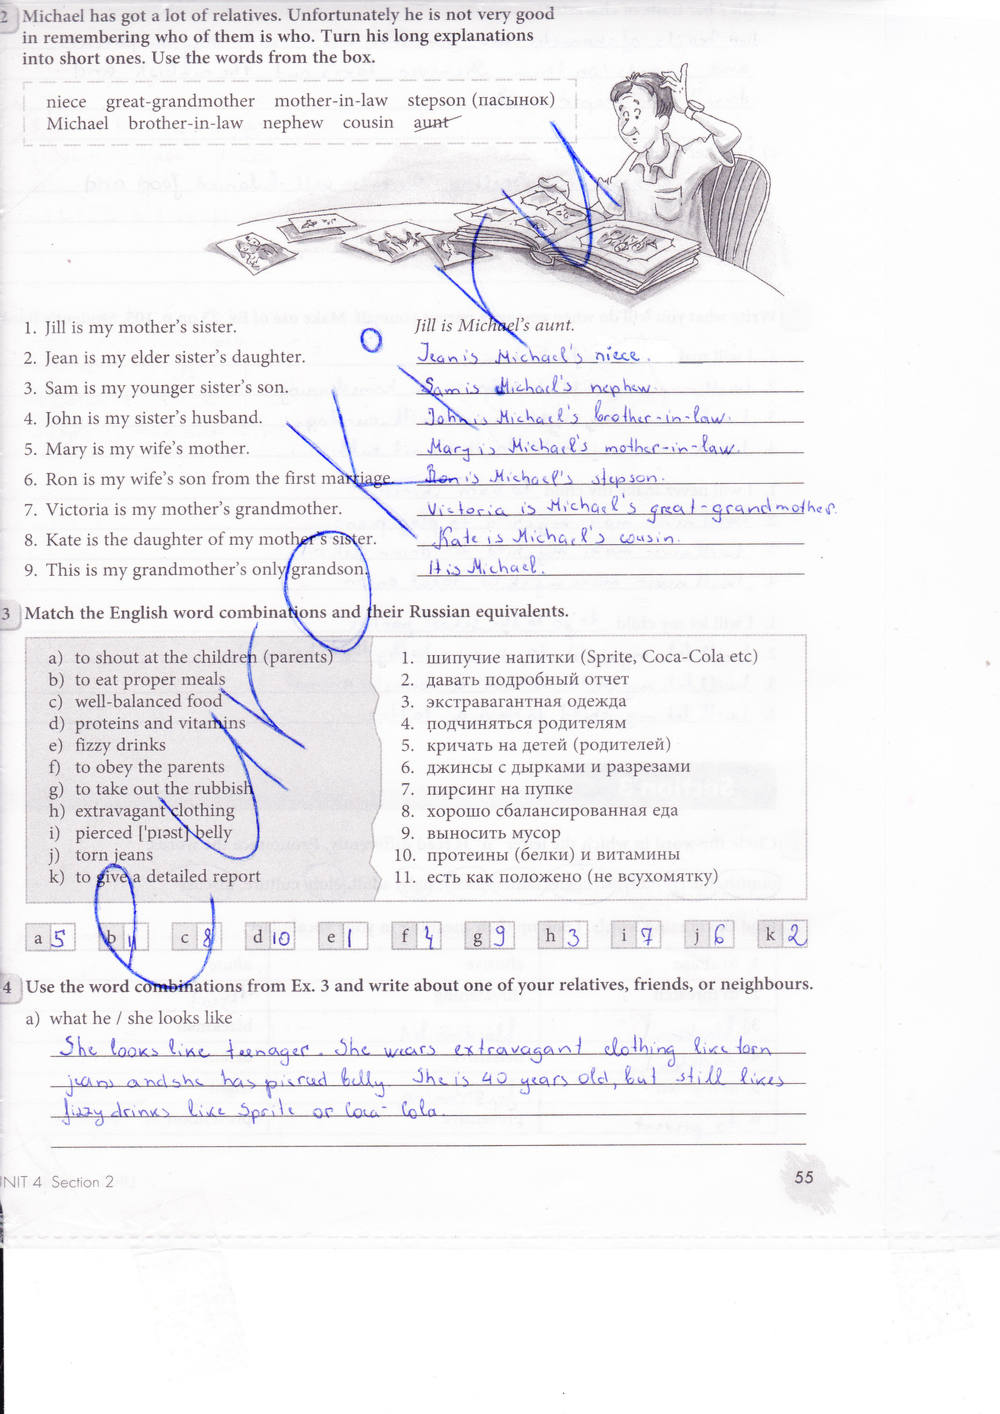 2 Michael has got a lot of relatives. Unfortunately he is not very good
in remembering who of them is who. Turn his long explanations
into short ones. Use the words from the box.
niece great-grandmother mother-in-law stepson (пасынок)
Michael brother-in-law nephew cousin aunt
1. Jill is my mother's sister. Jill is Michael's aunt.
2. Jean is my elder sister's daughter. Jean is Michael's niece.
3. Sam is my younger sister's son. Sam is Michael's nephew.
4. John is my sister's husband. John is Michael's brother-in-law.
5. Mary is my wife's mother. Mary is Michael's mother-in-law.
6. Ron is my wife's son from the first marriage. Ron is Michael's stepson.
7. Victoria is my mother's grandmother. Victoria is Michael's great-grandmother.
8. Kate is the daughter of my mother's sister. Kate is Michael's cousin.
9. This is my grandmother's only grandson. It is Michael.
3 Match the English word combinations and their Russian equivalents.
a) to shout at the children (parents) 1. шипучие напитки (Sprite, Coca-Cola etc)
b) to eat proper meals 2. давать подробный отчет
c) well-balanced food 3. экстравагантная одежда
d) proteins and vitamins 4. подчиняться родителям
e) fizzy drinks 5. кричать на детей (родителей)
f) to obey the parents 6. джинсы с дырками и разрезами
g) to take out the rubbish 7. пирсинг на пупке
h) extravagant clothing 8. хорошо сбалансированная еда
i) pierced ['pɪəst] belly 9. выносить мусор
j) torn jeans 10. протеины (белки) и витамины
k) to give a detailed report 11. есть как положено (не всухомятку)
a 5 b 11 c 8 d 10 e 1 f 4 g 9 h 3 i 7 j 6 k 2
4 Use the word combinations from Ex. 3 and write about one of your relatives, friends, or neighbours.
a) what he / she looks like
She looks like teenager. She wears extravagant clothing like torn
jeans and she has pierced belly She is 40 years old, but still likes
fizzy drinks like Sprite or Coca-Cola.
NIT 4 Section 2 55